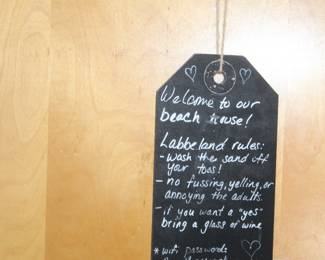 Welcome to our
beach house!
Labbeland rules:
- wash the sand off
your toes!
- no fussing, yelling, or
annoying the adults.
- if you want a "yes"
bring a glass of wine
* wifi password: